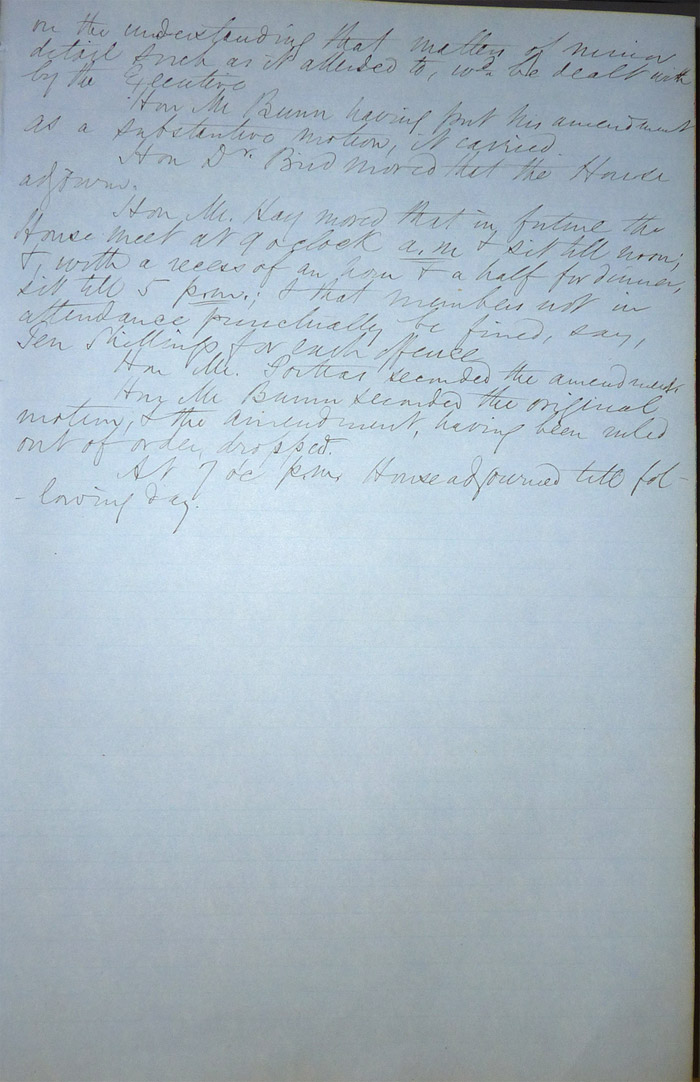 on the understanding that matters of minor
detail such as it alluded to, wd. be dealt with
by the Executive
Hon Mr Bunn having put his amendment
as a substantive motion, it carried
Hon Dr. Bird moved that the House
adjourn.
Hon Mr. Hay moved that in future the
House meet at 9 o'clock a.m & sit till noon;
&, with a recess of an hour & a half for dinner,
sit till 5 p.m.; & that members not in
attendance punctually be fined, say,
Ten Shillings for each offence
Hon Mr. Poitras seconded the amendment
Hon Mr Bunn seconded the original
motion, & the amendment, having been ruled
out of order, dropped.
At 7 oc p.m. House adjourned till fol-
-lowing day.